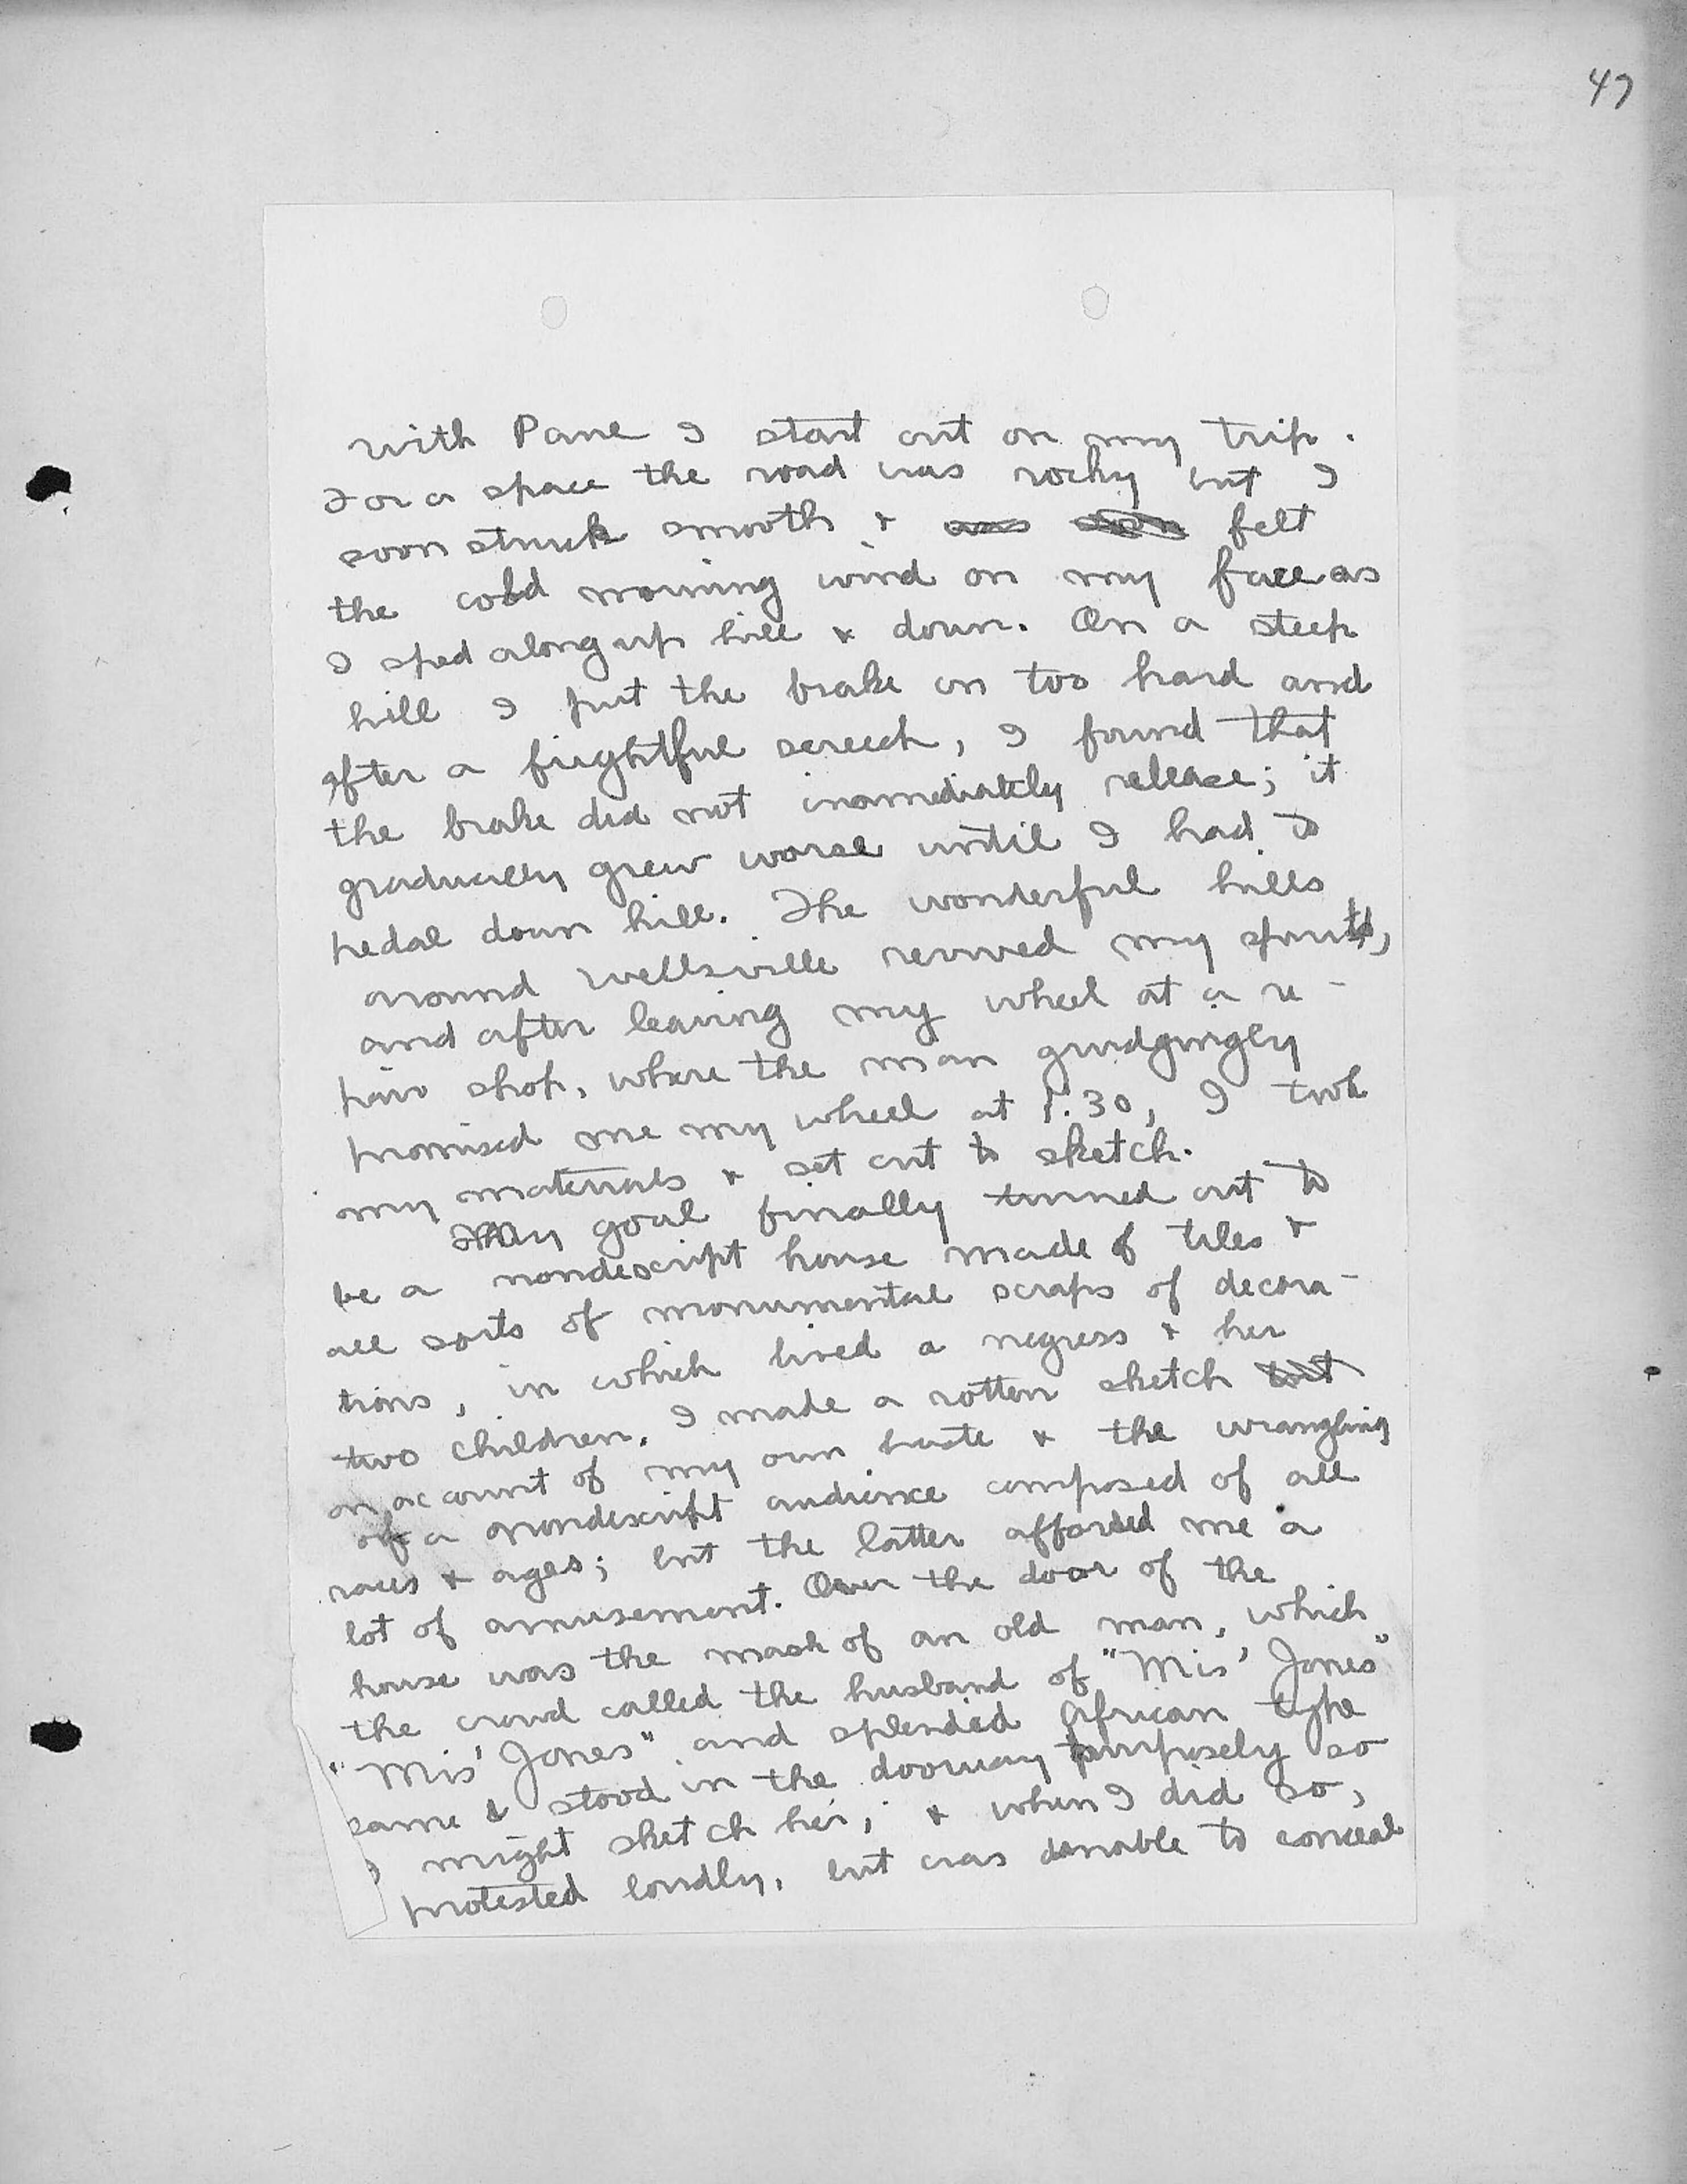 47
with Paul I start out on my trip.
For a space the road was rocky but I
soon struck smooth & felt
the cold morning wind on my face as
I sped along up hill & down. On a steep
hill I put the brake on too hard and
after a frightful screech, I found that
the brake did not immediately release; it
gradually grew worse until I had to
pedal down hill. The wonderful hills
around Wellsville revived my spirits,
and after leaving my wheel at a re-
pair shop, where the man grudgingly
promised me my wheel at 1.30, I took
my materials & set out to sketch.
My goal finally turned out to
be a nondescript house made of tiles &
all sorts of monumental scraps of decora-
tions, in which lived a negress & her
two children. I made a rotten sketch
on account of my own haste & the wrangling
of a nondescript audience composed of all
races & ages; but the latter afforded me a
lot of amusement. Over the door of the
house was the mask of an old man, which
the crowd called the husband of "Mis' Jones"
"Mis' Jones" and splendid African type
came & stood in the doorway purposely so
I might sketch her; & when I did so,
protested loudly, but was unable to conceal